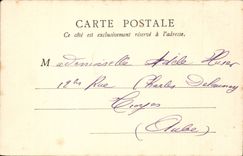 CARTE POSTALE
Ce côté est exclusivement réservé à l'adresse.
Mademoiselle Adèle
Rue Charles Delaunay
Troyes
(Aube)